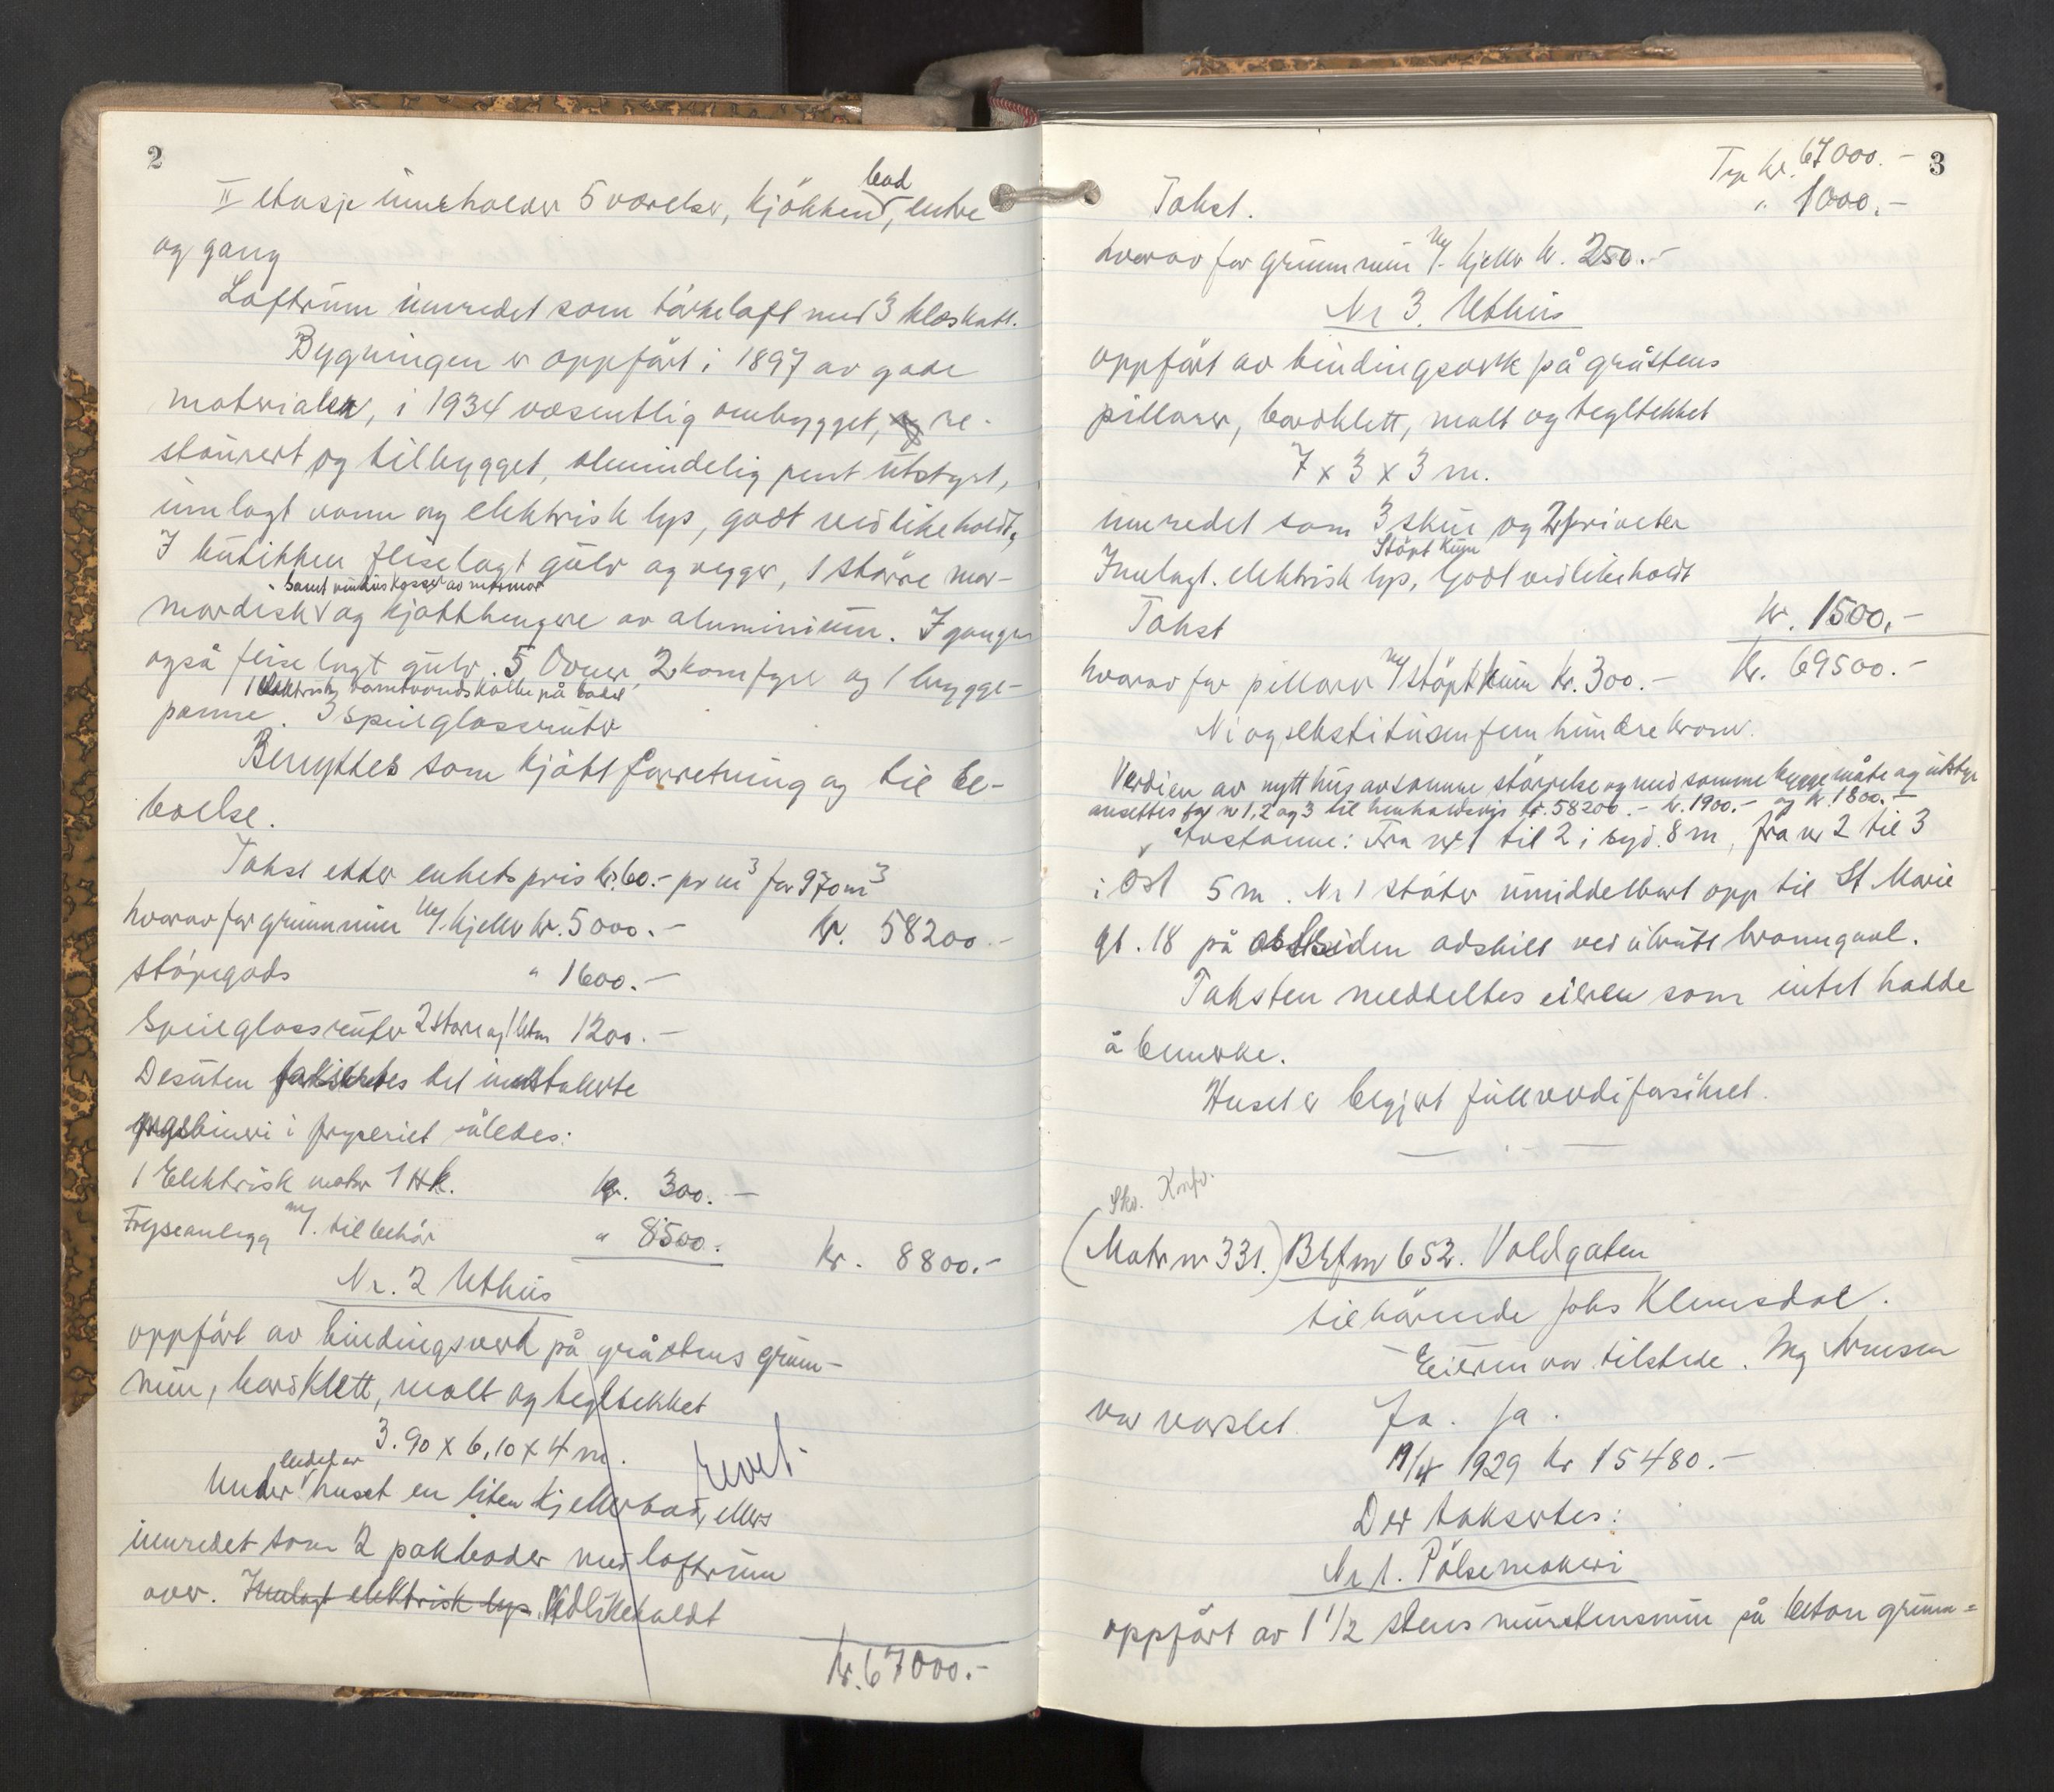 2
II etasje inneholder 5 værelser, kjökken, bad, entre
og gang
Loftrum innredet som törkeloft med 3 kleskott.
Bygningen er oppfört i 1897 av gode
materialer, i 1934 væsentlig ombygget, re-
staurert og tilbygget, almindelig pent utstyrt,
innlagt vann og elektrisk lys, godt vedlikeholdt,
I butikken fliselagt gulv og vegger, 1 större mar-
samt vinduskasser av marmor
mordisk og kjøtthengere av aluminium. I gangen
også fliselagt gulv. 5 Ovner, 2 komfyre og 1 brygge-
1 elektrisk varmtvandskolbe på badet
panne. 3 speilglassruter
Benyttes som kjött forretning og til be-
boelse.
Takst etter enhetspris kr. 60.- pr m3 for 970 m3
hvorav for grunnmur m/ kjeller kr. 5000.- kr. 58200.-
stöpegods " 1600.-
Speilglassruter 2 store og 1 liten 1200.-
Desuten forsikres det installerte
maskineri i fryseriet således:
1 Elektrisk motor 1 Hk. kr. 300.-
Fryseanlegg m/. tilbehör " 8500.- kr. 8800.-
Nr. 2 Uthus
oppfört av bindingsverk på gråstens grunn-
mur, bordklett, malt og tegltekket
3.90 x 6,10 x 4 m.
Under endel av huset en liten kjellerbod, ellers revet
innredet som 2 pakboder med loftrum
over. Innlagt elektrisk lys. Vedlikeholdt
kr. 67000.-
3
Trp kr. 67000.-
Takst. " 1000.-
hvorav for grunnmur m/. kjeller kr. 250.-
Nr 3. Uthus
oppfört av bindingsverk på gråstens
pillarer, bordklett, malt og tegltekket
7 x 3 x 3 m.
innredet som 3 skur og 2 priveter
Stöpt kum
Innlagt. elektrisk lys, Godt vedlikeholdt
Takst kr. 1500,-
hvorav for pillarer m/ stöpt kum kr. 300.- kr. 69500.-
Niogsekstitusenfemhundrekroner.
Verdien av nytt hus av samme störrelse og med samme byggemåte og utstyr
ansettes for nr 1, 2 og 3 til henholdsvis kr. 58200.- kr. 1900.- og kr. 1800.-
Avstanne: Fra nr 1 til 2 i syd. 8 m, fra nr 2 til 3
i öst 5 m. Nr 1 stöter umiddelbart opp til St Marie
gt. 18 på østsiden adskilt ved ubrutt branngavl.
Taksten meddeltes eieren som intet hadde
å bemerke.
Huset er begjert fullverdiforsikret.
Sko. Konfr.
(Matr nr 331.) Bktnr 652. Voldgaten
tilhörende Johs Klemsdal.
Eieren var tilstede. Ing Arnesen
var varslet. Ja. Ja.
19/4 1929 kr 15480.-
Der taksertes:
Nr 1. Pölsemakeri
oppfört av 1 1/2 stens murstensmur på beton grunn=